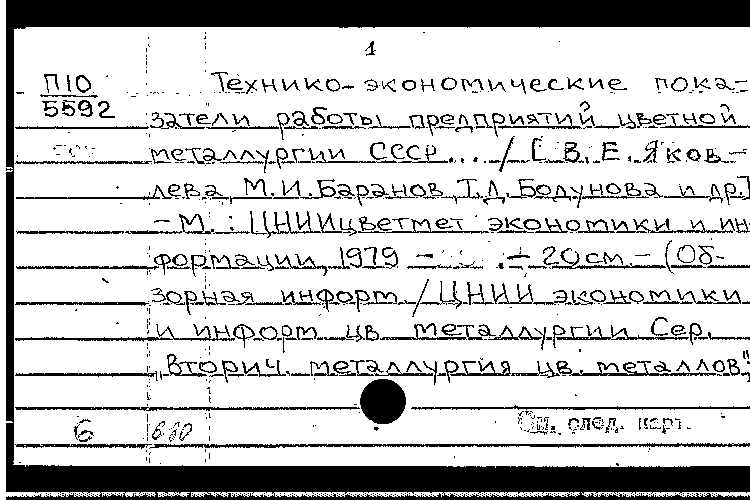 1
П10
5592
Технико-экономические пока-
затели работы предприятий цветной
металлургии СССР... / [В.Е. Яков-
лева, М.И. Баранов, Т.Д. Болунова и др.]
- М. : ЦНИИцветмет экономики и ин
формации, 1979 - . - 20 см - (Об-
зорная информ / ЦНИИ экономики
и информ цв металлургии Сер.
„Вторич. металлургия цв. металлов",
6
См. след. карт.